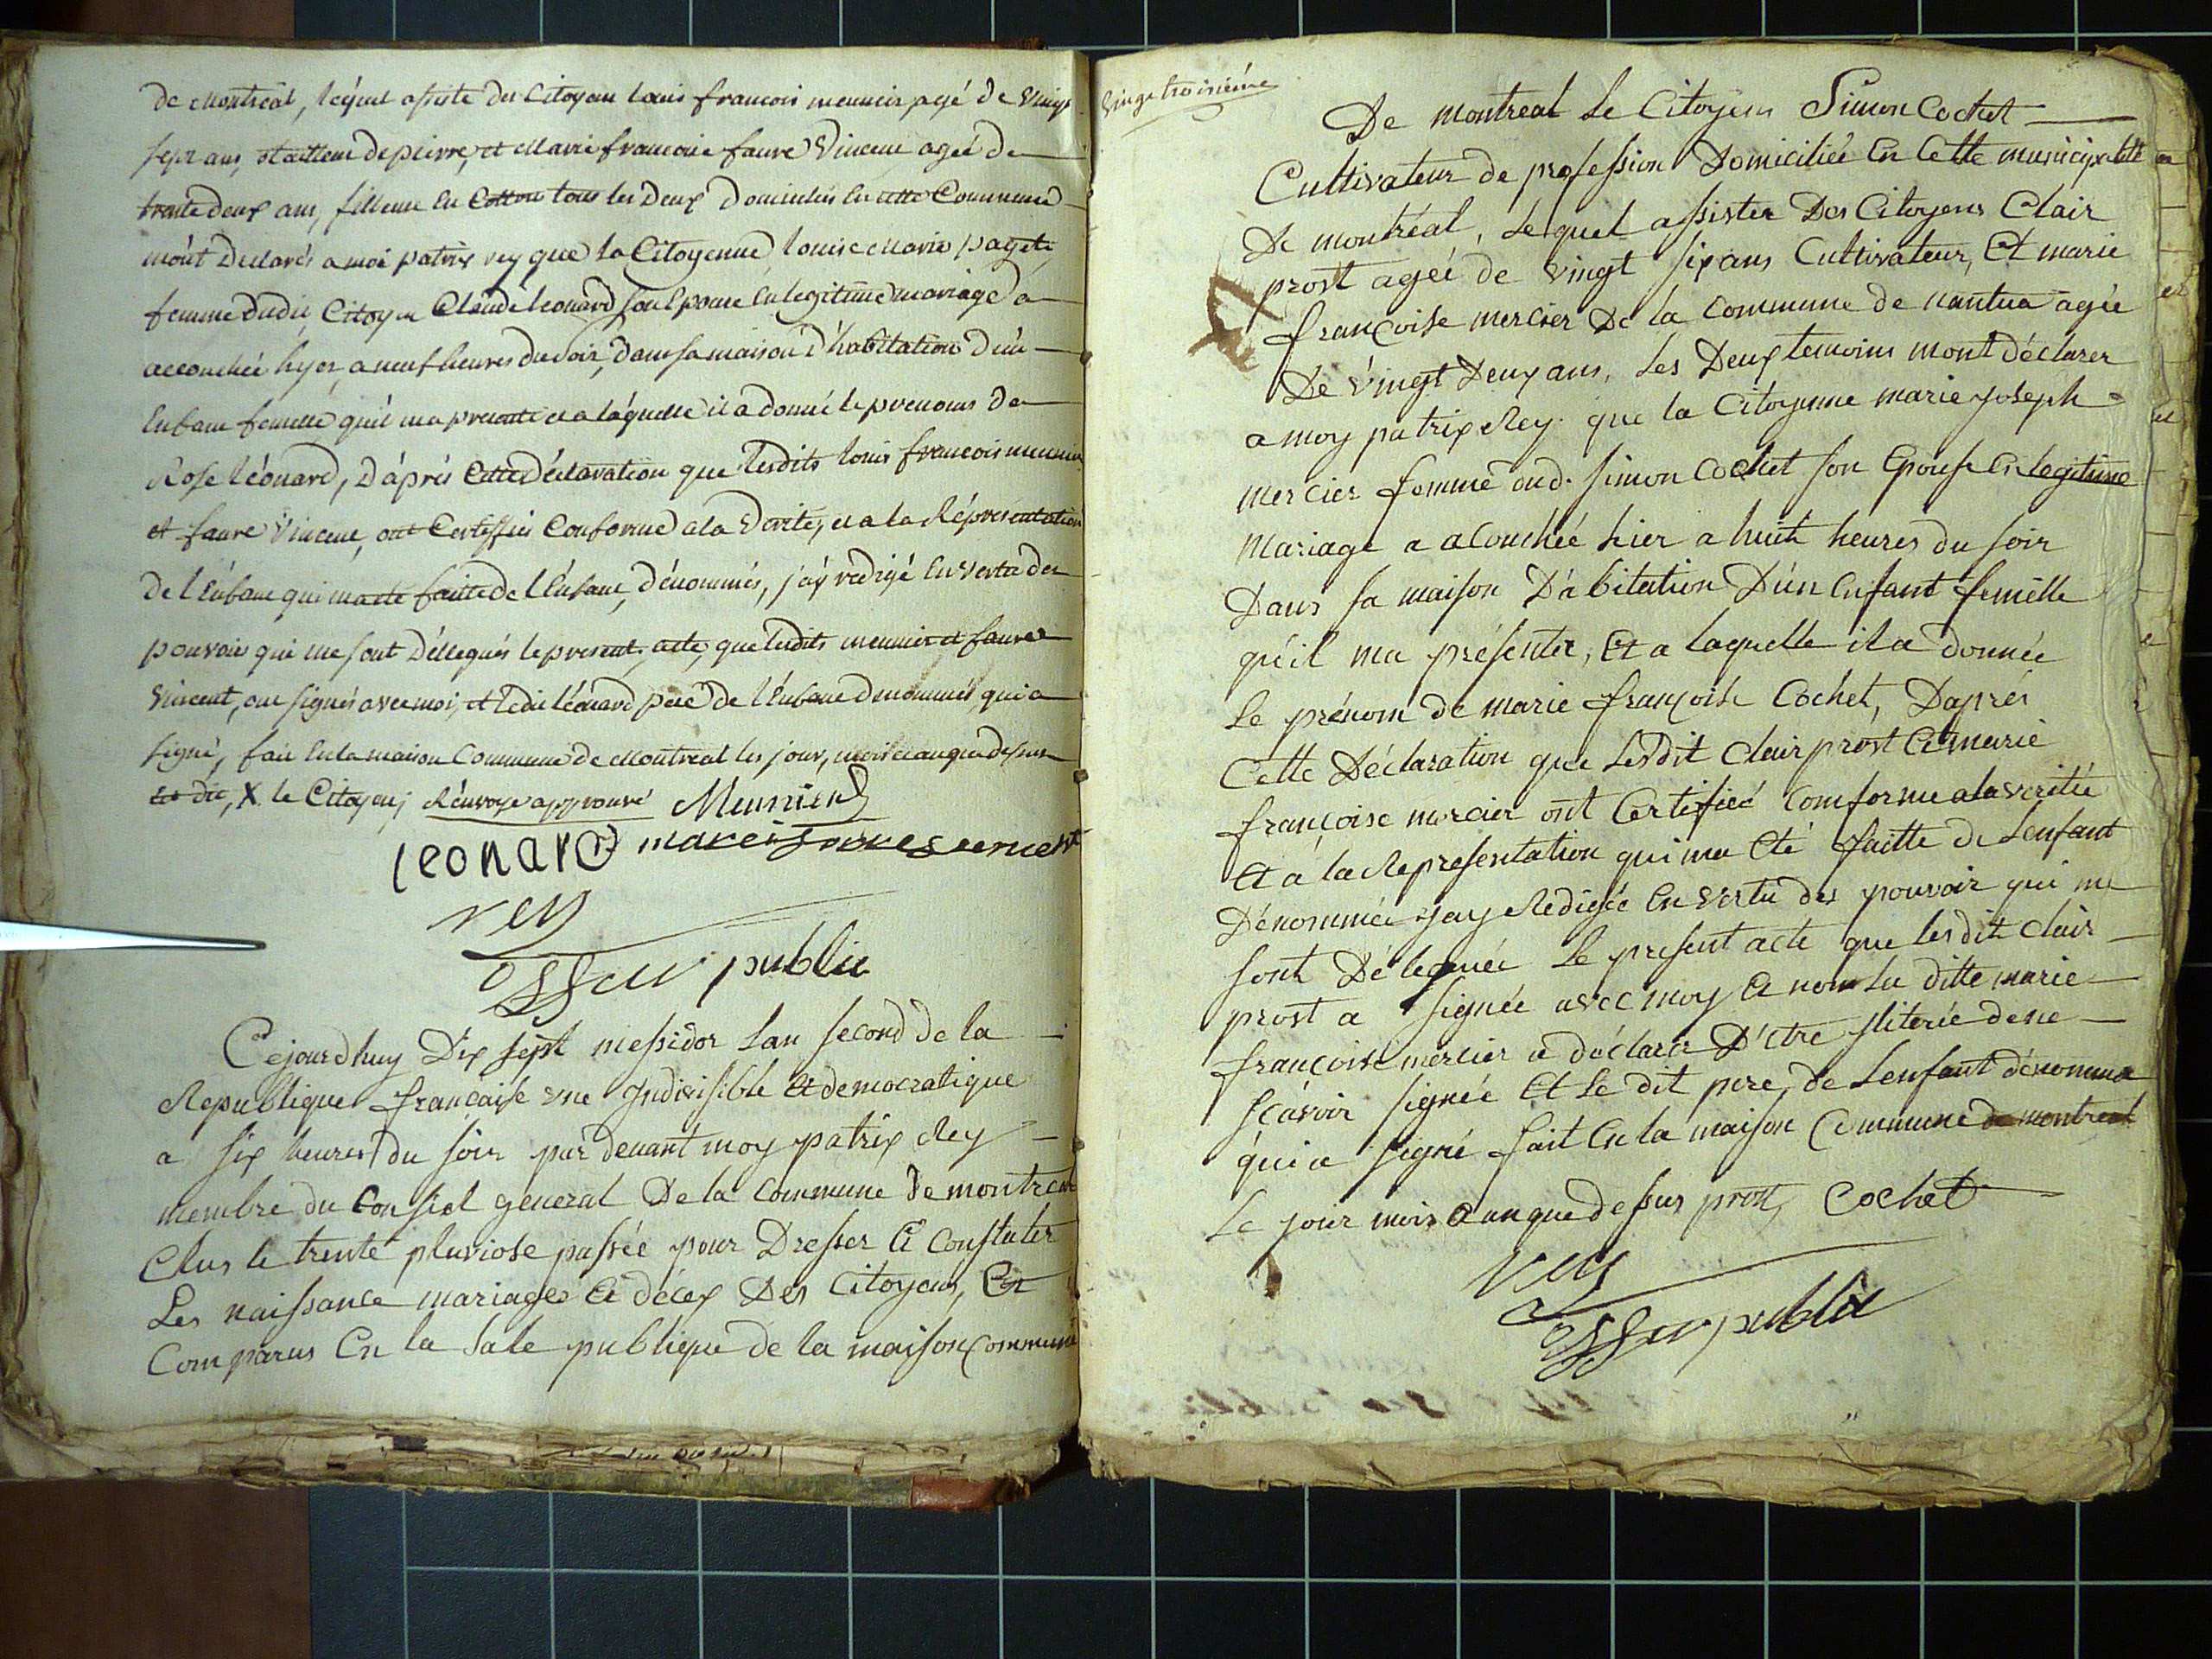 de Montréal, lequel assisté des Citoyens Louis françois meunier agé de vingt
sept ans, tailleur de pierre, et Marie francoise faure Vincent agée de
trente deux ans, fileuse en Cotton tous les Deux Domiciliés en cette Commune
m'ont Declarés a moi patrix rey que la Citoyenne, louise Marie pagets,
femme dudit Citoyen Claude leonard son Epouse en legitime mariage a
accouchée hyer, a neuf heures du soir, dans sa maison d'habitation d'un
Enfant femelle qu'il m'a presenté et a laquelle il a donné le prenoms de
Rose léonard, D'après cette déclaration que lesdits louis francois meunier
et faure Vincent, ont Certiffiés Conforme a la Vérité, et a la Répresentation
de l'Enfant qui m'a eté faitte de l'Enfant, dénommés, j'aÿ rédigé En vertu des
pouvoir qui me sont Déllegués le present acte, que lesdits meunier et faure
Vincent, ont signés avec moi, et ledit léonard peré de l'Enfant denommés, qui a
signé, fait En la maison Commune de Montreal les jour, mois et an que dessus
Est dit, X le Citoyen; Rénvoye approuvé Meunier
leonard
rey
officier public
Cejourdhuy Dix sept messidor Lan second de la
Republique francaise une Indivisible et democratique
a six heures du soir par devant moy patrix Rey
membre du Consiel general De la Commune De montreal
Elus le trente pluviose passée pour Dresser et Constater
Les naissance mariages et décex Des Citoyens, Est
Comparus En la sale publique de la maison Commune
vingt troisiéme
De montreal Le Citoyen Simon Cochet
Cultivateur de profession Domiciliée En Cette municipalité
De montréal, Lequel assister Des Citoyens Clair
prost ageé de vingt six ans Cultivateur, Et marie
françoise mercier De la Commune de nantua agée
De vingt Deux ans, Les Deux temoins mont déclarer
a moy patrix Rey que la Citoyenne marie joseph
mercier femme dud. Simon Cochet son Epouse En legitime
Mariage a acouchée hier a huit heures du soir
Dans sa maison D'abitation D'un Enfant femélle
qu'il ma présenter, Et a laquelle il a donnée
Le prénom de marie françoise Cochet, Daprés
Cette Déclaration que Lesdit Clair prost et marie
françoise mercier ont Certifiée Comforme a la véritée
Et a la Representation qui ma Eté faitte de Lenfant
Dénommée jay Redigée En vertu des pouvoir qui me
sont Déleguée Le present acte que lesdit Clair
prost a signée avec moy Et non La ditte marie
françoise mercier a déclarer D'Etre sliterée de ne
scavoir signée Et Le dit pere, de Lenfant dénommé
qui a signé fait En la maison Commune de montreal
Le jour mois et an que dessus prost, Cochet
rey
officier public